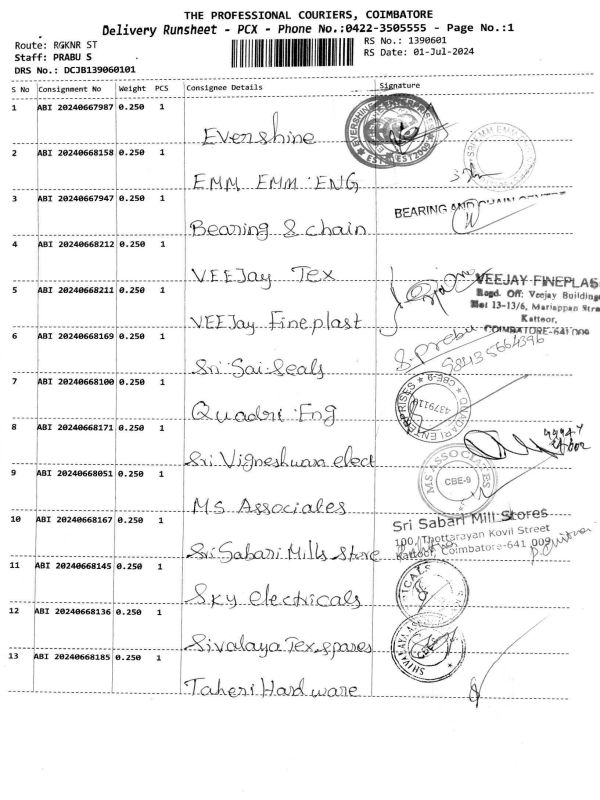 THE PROFESSIONAL COURIERS, COIMBATORE
Delivery Runsheet - PCX - Phone No.:0422-3505555 - Page No.:1
Route: RGKNR ST
RS No.: 1390601
Staff: PRABU S
RS Date: 01-Jul-2024
DRS No.: DCJB139060101
S No Consignment No Weight PCS Consignee Details Signature
1 ABI 20240667987 0.250 1
Evershine
EVERSHINE ENTERPRISES
EST 2009
2 ABI 20240668158 0.250 1
EMM EMM ENG
SRI EMM EMM
3 ABI 20240667947 0.250 1
Bearing & chain
BEARING AND CHAIN CENTRE
4 ABI 20240668212 0.250 1
VEEJay Tex
5 ABI 20240668211 0.250 1
VEEJay Fineplast
VEEJAY FINEPLAS
Regd. Off: Veejay Building
13-13/6, Mariappan Stre
Kattoor,
COIMBATORE-641 009
6 ABI 20240668169 0.250 1
Sri Sai Seals
S. Prabu
7 ABI 20240668100 0.250 1
Quadri Eng
ENTERPRISES
CBE-9
8 ABI 20240668171 0.250 1
Sri Vigneshwan elect
9 ABI 20240668051 0.250 1
MS Associales
MS ASSOCIATES
CBE-9
10 ABI 20240668167 0.250 1
Sri Sabari Mills store
Sri Sabari Mill Stores
100, Thottarayan Kovil Street
Kattoor, Coimbatore-641 009
11 ABI 20240668145 0.250 1
Sky electricals
12 ABI 20240668136 0.250 1
Sivalaya Tex spares
13 ABI 20240668185 0.250 1
Taheri Hardware